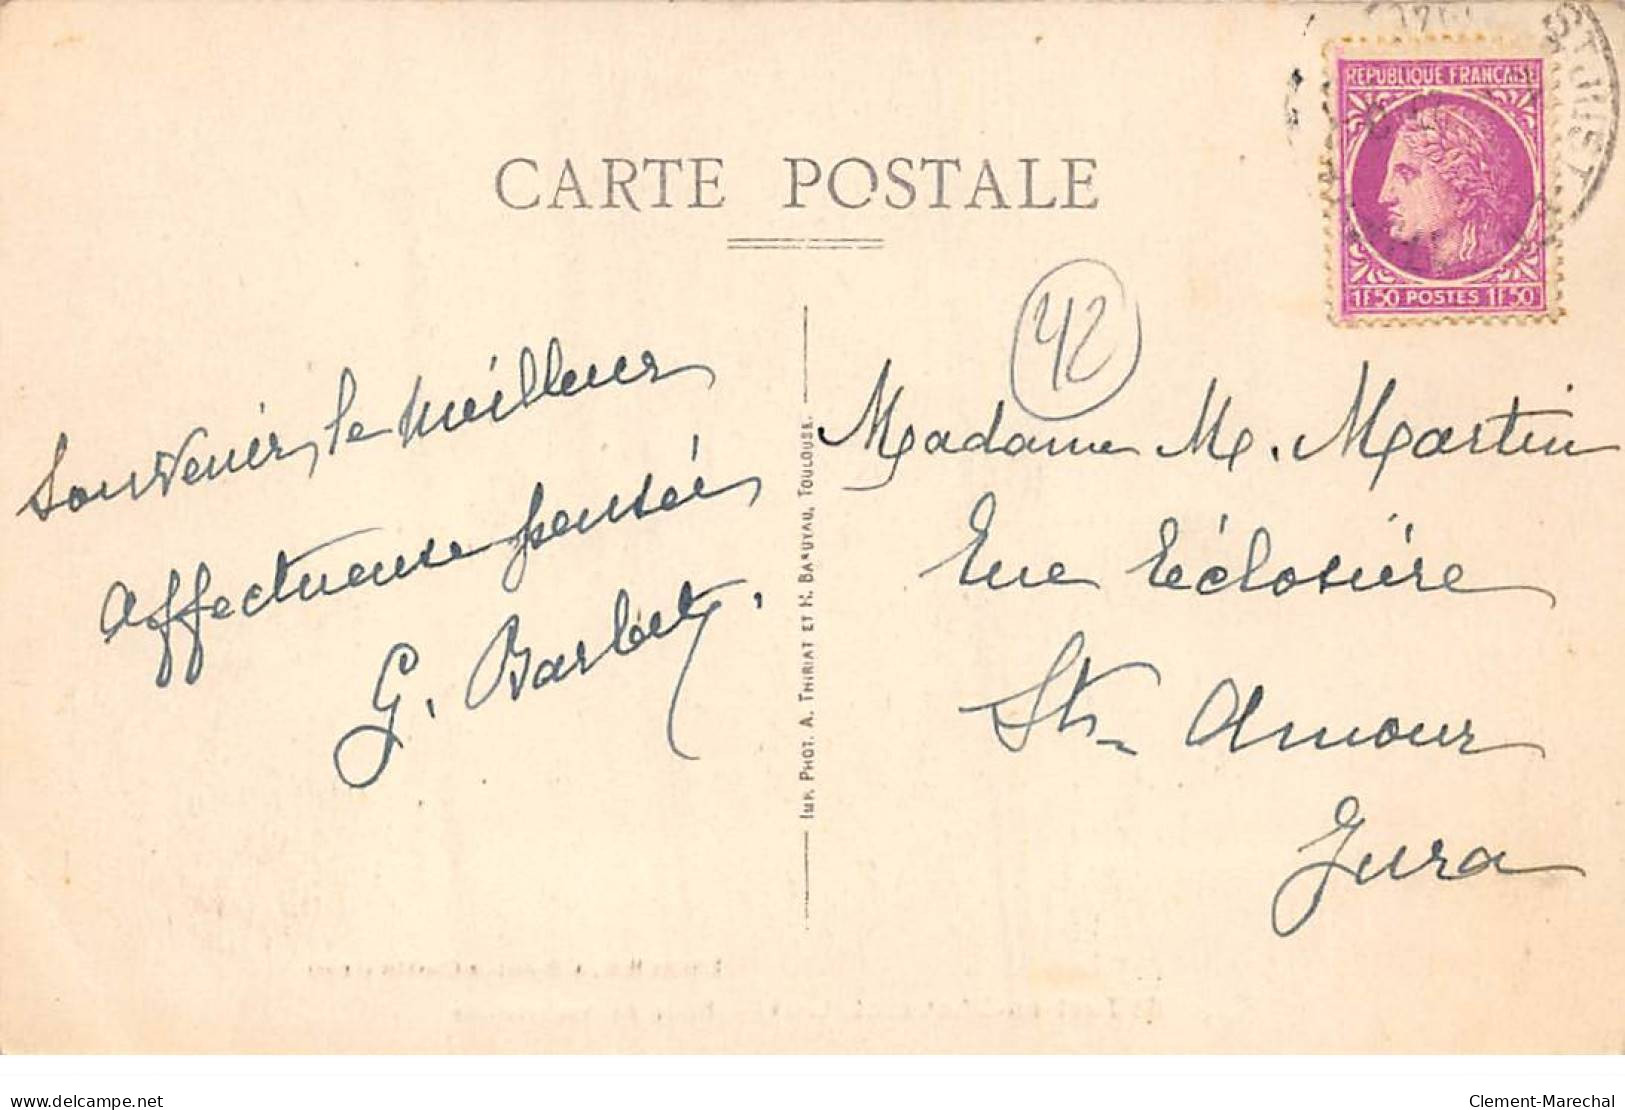 CARTE POSTALE
REPUBLIQUE FRANÇAISE
1F50 POSTES 1F50
ST JUST
42
Souvenir, le meilleur
affectueuse pensée
G. Barbet.
IMP. PHOT. A. THIRIAT ET H. BASUYAU, TOULOUSE.
Madame M. Martin
Rue l'éclosière
St Amour
Jura
delcampe.net
Clement-Marechal